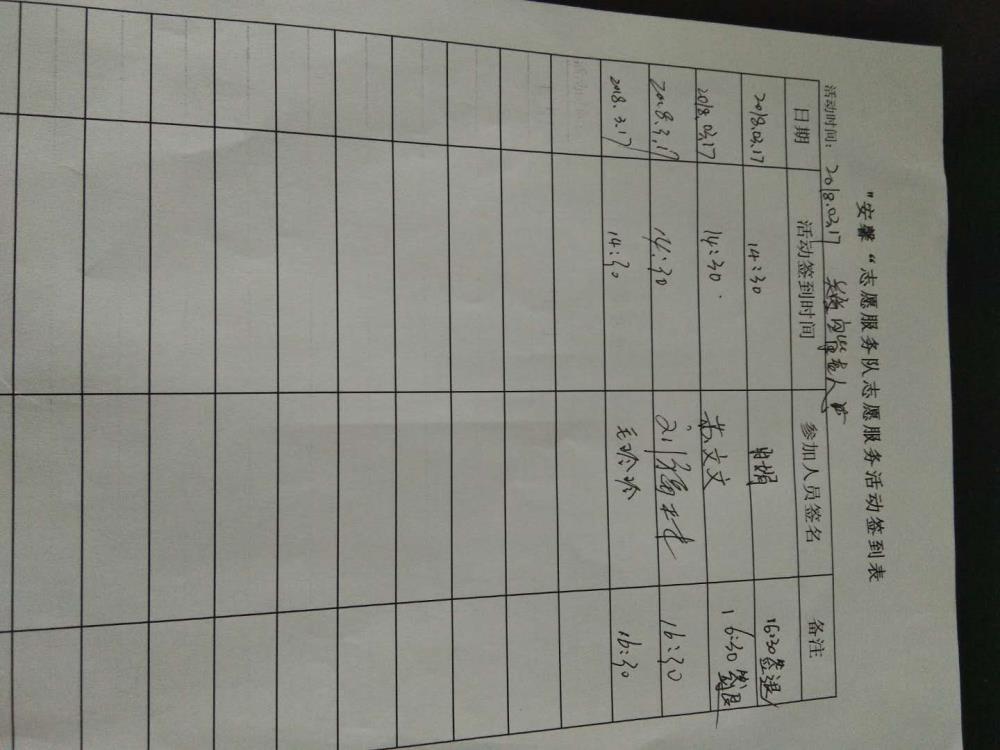 "安馨"志愿服务队志愿服务活动签到表
活动时间：2018.03.17
日期 活动签到时间 参加人员签名 备注
2018.03.17 14:30 16:30签退
2018.03.17 14:30. 苏文文 16:30签退
2018.3.17 14:30 16:30
2018.3.17 14:30 毛玲玲 16:30